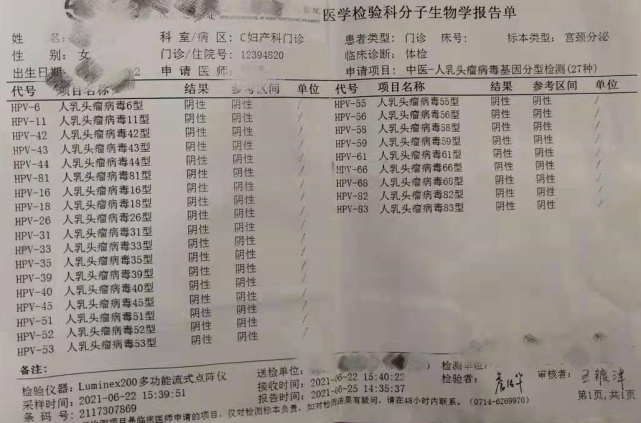 医学检验科分子生物学报告单
姓 科室/病区: C妇产科门诊 患者类型: 门诊 床号: 标本类型: 宫颈分泌
性 别: 女 门诊/住院号: 12394820 临床诊断: 体检
出生日期 2 申请医师: 申请项目: 中医-人乳头瘤病毒基因分型检测(27种)
代号 项目名称 结果 参考区间 单位 代号 项目名称 结果 参考区间 单位
HPV-6 人乳头瘤病毒6型 阴性 阴性 / HPV-55 人乳头瘤病毒55型 阴性 阴性 /
HPV-11 人乳头瘤病毒11型 阴性 阴性 / HPV-56 人乳头瘤病毒56型 阴性 阴性 /
HPV-42 人乳头瘤病毒42型 阴性 阴性 / HPV-58 人乳头瘤病毒58型 阴性 阴性 /
HPV-43 人乳头瘤病毒43型 阴性 阴性 / HPV-59 人乳头瘤病毒59型 阴性 阴性 /
HPV-44 人乳头瘤病毒44型 阴性 阴性 / HPV-61 人乳头瘤病毒61型 阴性 阴性 /
HPV-81 人乳头瘤病毒81型 阴性 阴性 / HPV-66 人乳头瘤病毒66型 阴性 阴性 /
HPV-16 人乳头瘤病毒16型 阴性 阴性 / HPV-68 人乳头瘤病毒68型 阴性 阴性 /
HPV-18 人乳头瘤病毒18型 阴性 阴性 / HPV-82 人乳头瘤病毒82型 阴性 阴性 /
HPV-26 人乳头瘤病毒26型 阴性 阴性 / HPV-83 人乳头瘤病毒83型 阴性 阴性 /
HPV-31 人乳头瘤病毒31型 阴性 阴性 /
HPV-33 人乳头瘤病毒33型 阴性 阴性 /
HPV-35 人乳头瘤病毒35型 阴性 阴性 /
HPV-39 人乳头瘤病毒39型 阴性 阴性 /
HPV-40 人乳头瘤病毒40型 阴性 阴性 /
HPV-45 人乳头瘤病毒45型 阴性 阴性 /
HPV-51 人乳头瘤病毒51型 阴性 阴性 /
HPV-52 人乳头瘤病毒52型 阴性 阴性 /
HPV-53 人乳头瘤病毒53型 阴性 阴性 /
备注:
送检单位: 检测单位:
检验仪器: Luminex200多功能流式点阵仪 接收时间: 2021-06-22 15:40:22 检验者: 审核者:
采样时间: 2021-06-22 15:39:51 报告时间: 2021-06-25 14:35:37 第1页,共1页
条 码 号: 2117307869
检测项目是临床医师申请的项目,仅对检测标本负责,如对检测结果有疑问,请在48小时内联系。(0714-6269970)